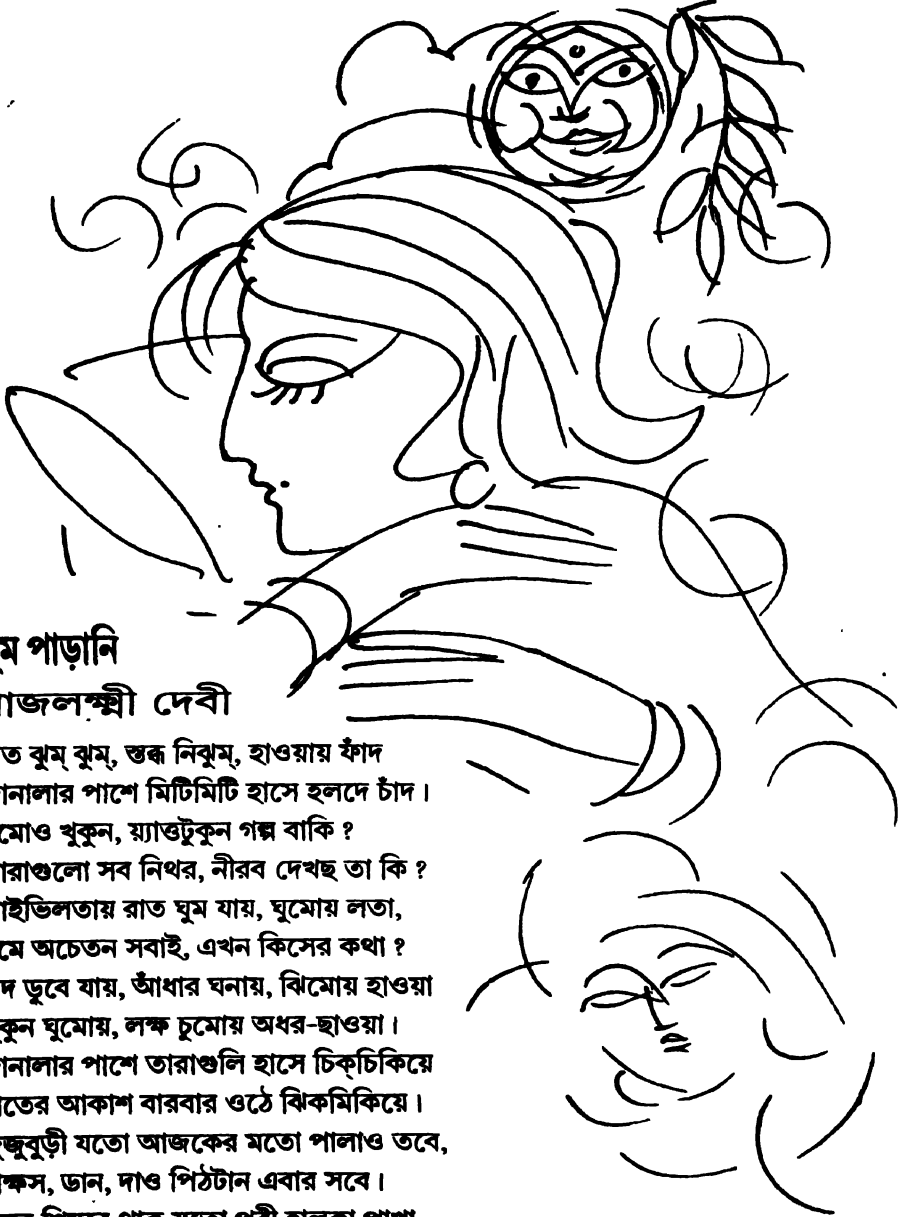 পাড়ানি
দেবী
ঝুম্ ঝুম্, স্তব্ধ নিঝুম্, হাওয়ায় ফাঁদ
পাশে মিটিমিটি হাসে হলদে চাঁদ।
খুকুন, য়্যাত্তটুকুন গল্প বাকি?
সব নিথর, নীরব দেখছ তা কি?
রাত ঘুম যায়, ঘুমোয় লতা,
অচেতন সবাই, এখন কিসের কথা?
ডুবে যায়, আঁধার ঘনায়, ঝিমোয় হাওয়া
ঘুমোয়, লক্ষ চুমোয় অধর-ছাওয়া।
পাশে তারাগুলি হাসে চিক্‌চিকিয়ে
আকাশ বারবার ওঠে ঝিকমিকিয়ে।
যতো আজকের মতো পালাও তবে,
ডান, দাও পিঠটান এবার সবে।